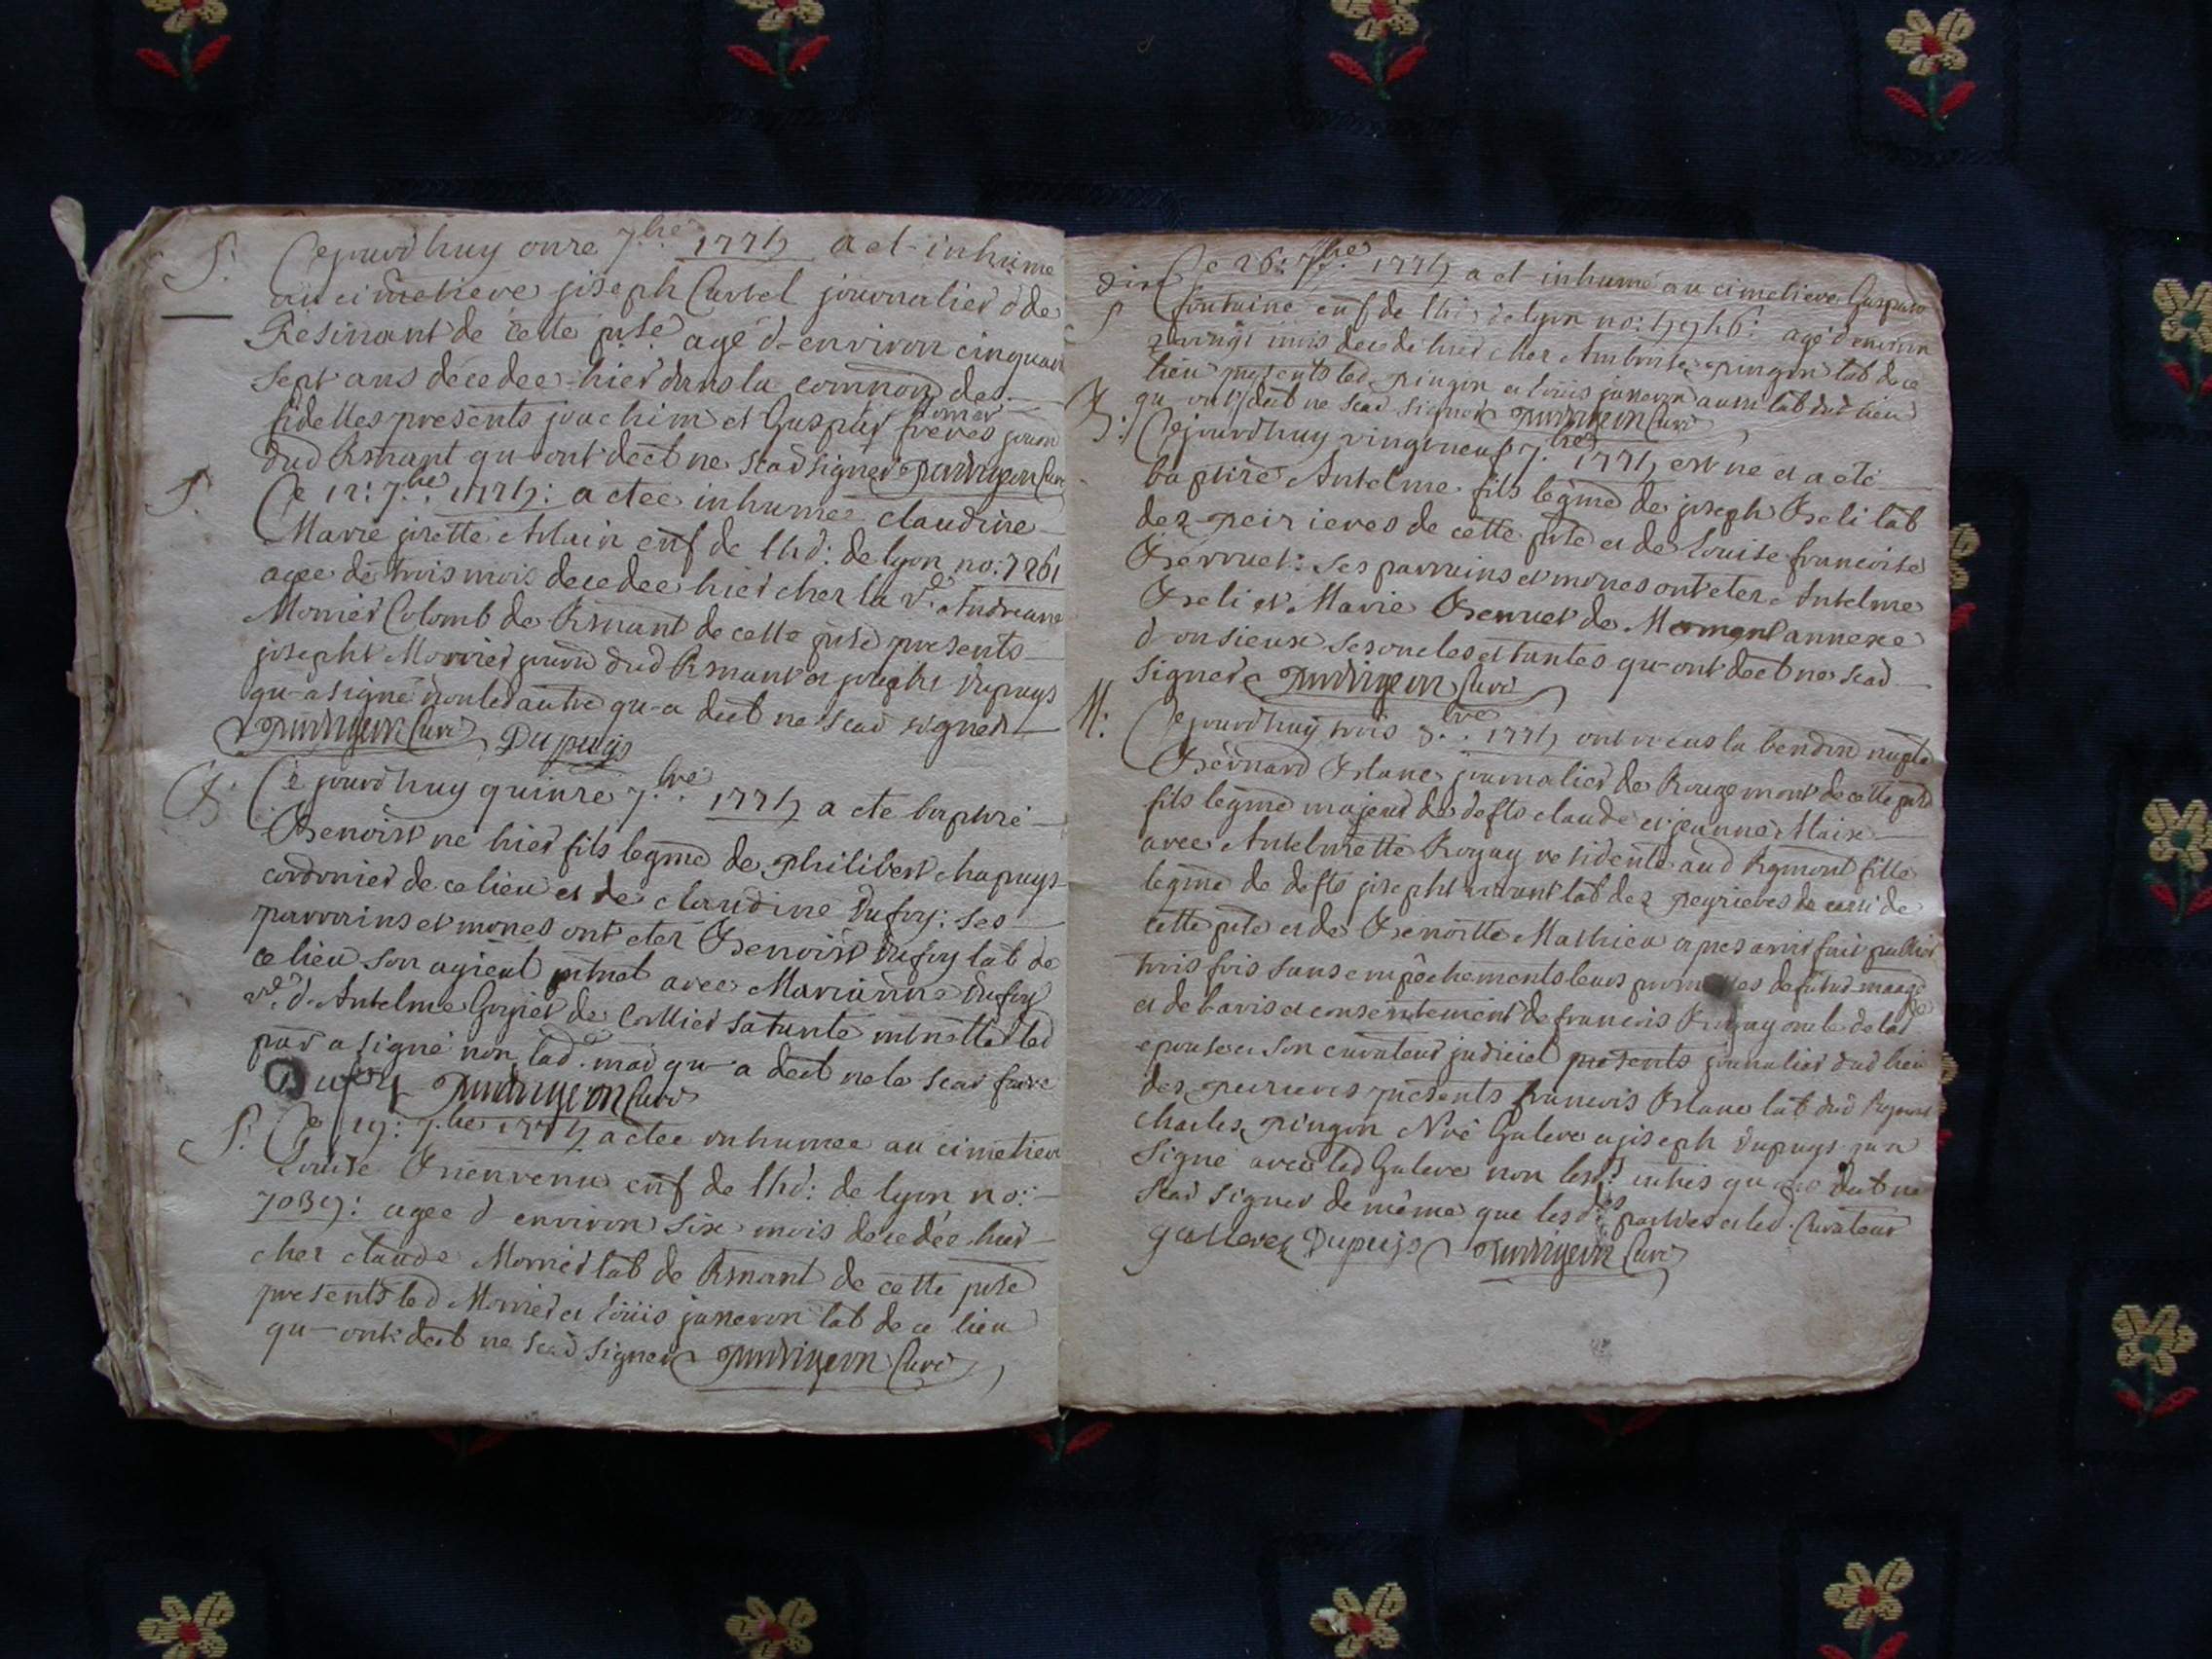 S. Cejourd'huy onze 7.bre 1774 a et inhume
au cimetiere joseph Curtel journalier de
Resinant de cette p.se age d'environ cinquan
sept ans decedee hier dans la comnon des
fidelles presents joachim et Gaspard freres journ
dud Rsnant qu-ont dect ne scad signer curé
S. Ce 12: 7.bre 1774: a etee inhumee claudine
Marie josette Alain enf de lhd: de lyon no: 7261
agee de trois mois decedee hier cher la v.e Andreane
Monier Colomb de Rsnant de cette psse presents
josepht Monier journ dud Rsnant et josepht Dupuys
qu-a signé non led autre qu-a dect ne scad signer
curé Dupuijs
B. Cejourd'huy quinze 7.bre 1774 a ete baptizé
Benoist né hier fils legme de philibert chapuys
cordonier de ce lieu et de claudine Dufey: ses
parrains et mones ont eter Benoist Dufey lab de
ce lieu son ayieul mtnel avec Marianne Dufey
v.e d'Antelme Goyiet de Collier sa tante mtnelle led
par a signé non lad. mad qu-a dect ne le scad faire
Dufey curé
S. Ce 19: 7.bre 1774 a etee inhumee au cimetiere
Louise Bienvenu enf de lhd: de lyon no:
7039: agee d'environ six mois decedée hier
cher claude Monier lab de Rsnant de cette psse
presents led Monier et louis janeron lab de ce lieu
qu-ont dect ne scad signer curé
dix Ce 26: 7.bre 1774 a et inhumé au cimetiere Gaspard
S fontaine enf de lhd de lyon no: agé d'environ
mois decedé hier cher Ambroise pingon lab de ce
lieu presents led pingon et louis janeron aussi lab dud lieu
qu-ont dect ne scad signer curé
B: Cejourd'huy vingt neuf 7.bre 1774 est ne et a eté
baptizé Antelme fils legme de joseph Beli lab
dez peirieres de cette psse et de Louise francoise
Berruet: ses parrains et mones ont eter Antelme
Beli et Marie Berruet de annexe
d'onsieux ses oncles et tantes qu-ont dect ne scad
signer curé
M: Cejourd'huy trois 8.bre 1774 ont recus la bendon nuple
Bernard Blanc journalier de Rougemont de cette psse
fils legme majeur de defts claude et jeanne Maix
avec Antelmette Royay residente aud Rgmont fille
legme de deft josepht vivant lab dez peyrieres de
cette psse et de Benoitte Mathieu apres avoir fait publier
trois fois sans empêchements leurs promesses de futur marage
et de l'avis et consentement de francois Royay oncle de lad
epouse et son curateur judiciel presents journalier dud lieu
des peirieres presents francois Blanc lab dud Rgmont
charles pingon Noé Galere et joseph dupuys qu-a
signé avec led Galere non lesd. autres qu-ont dect ne
scad signer de même que lesd parties et led. Curateur
gallerez Dupuijs curé